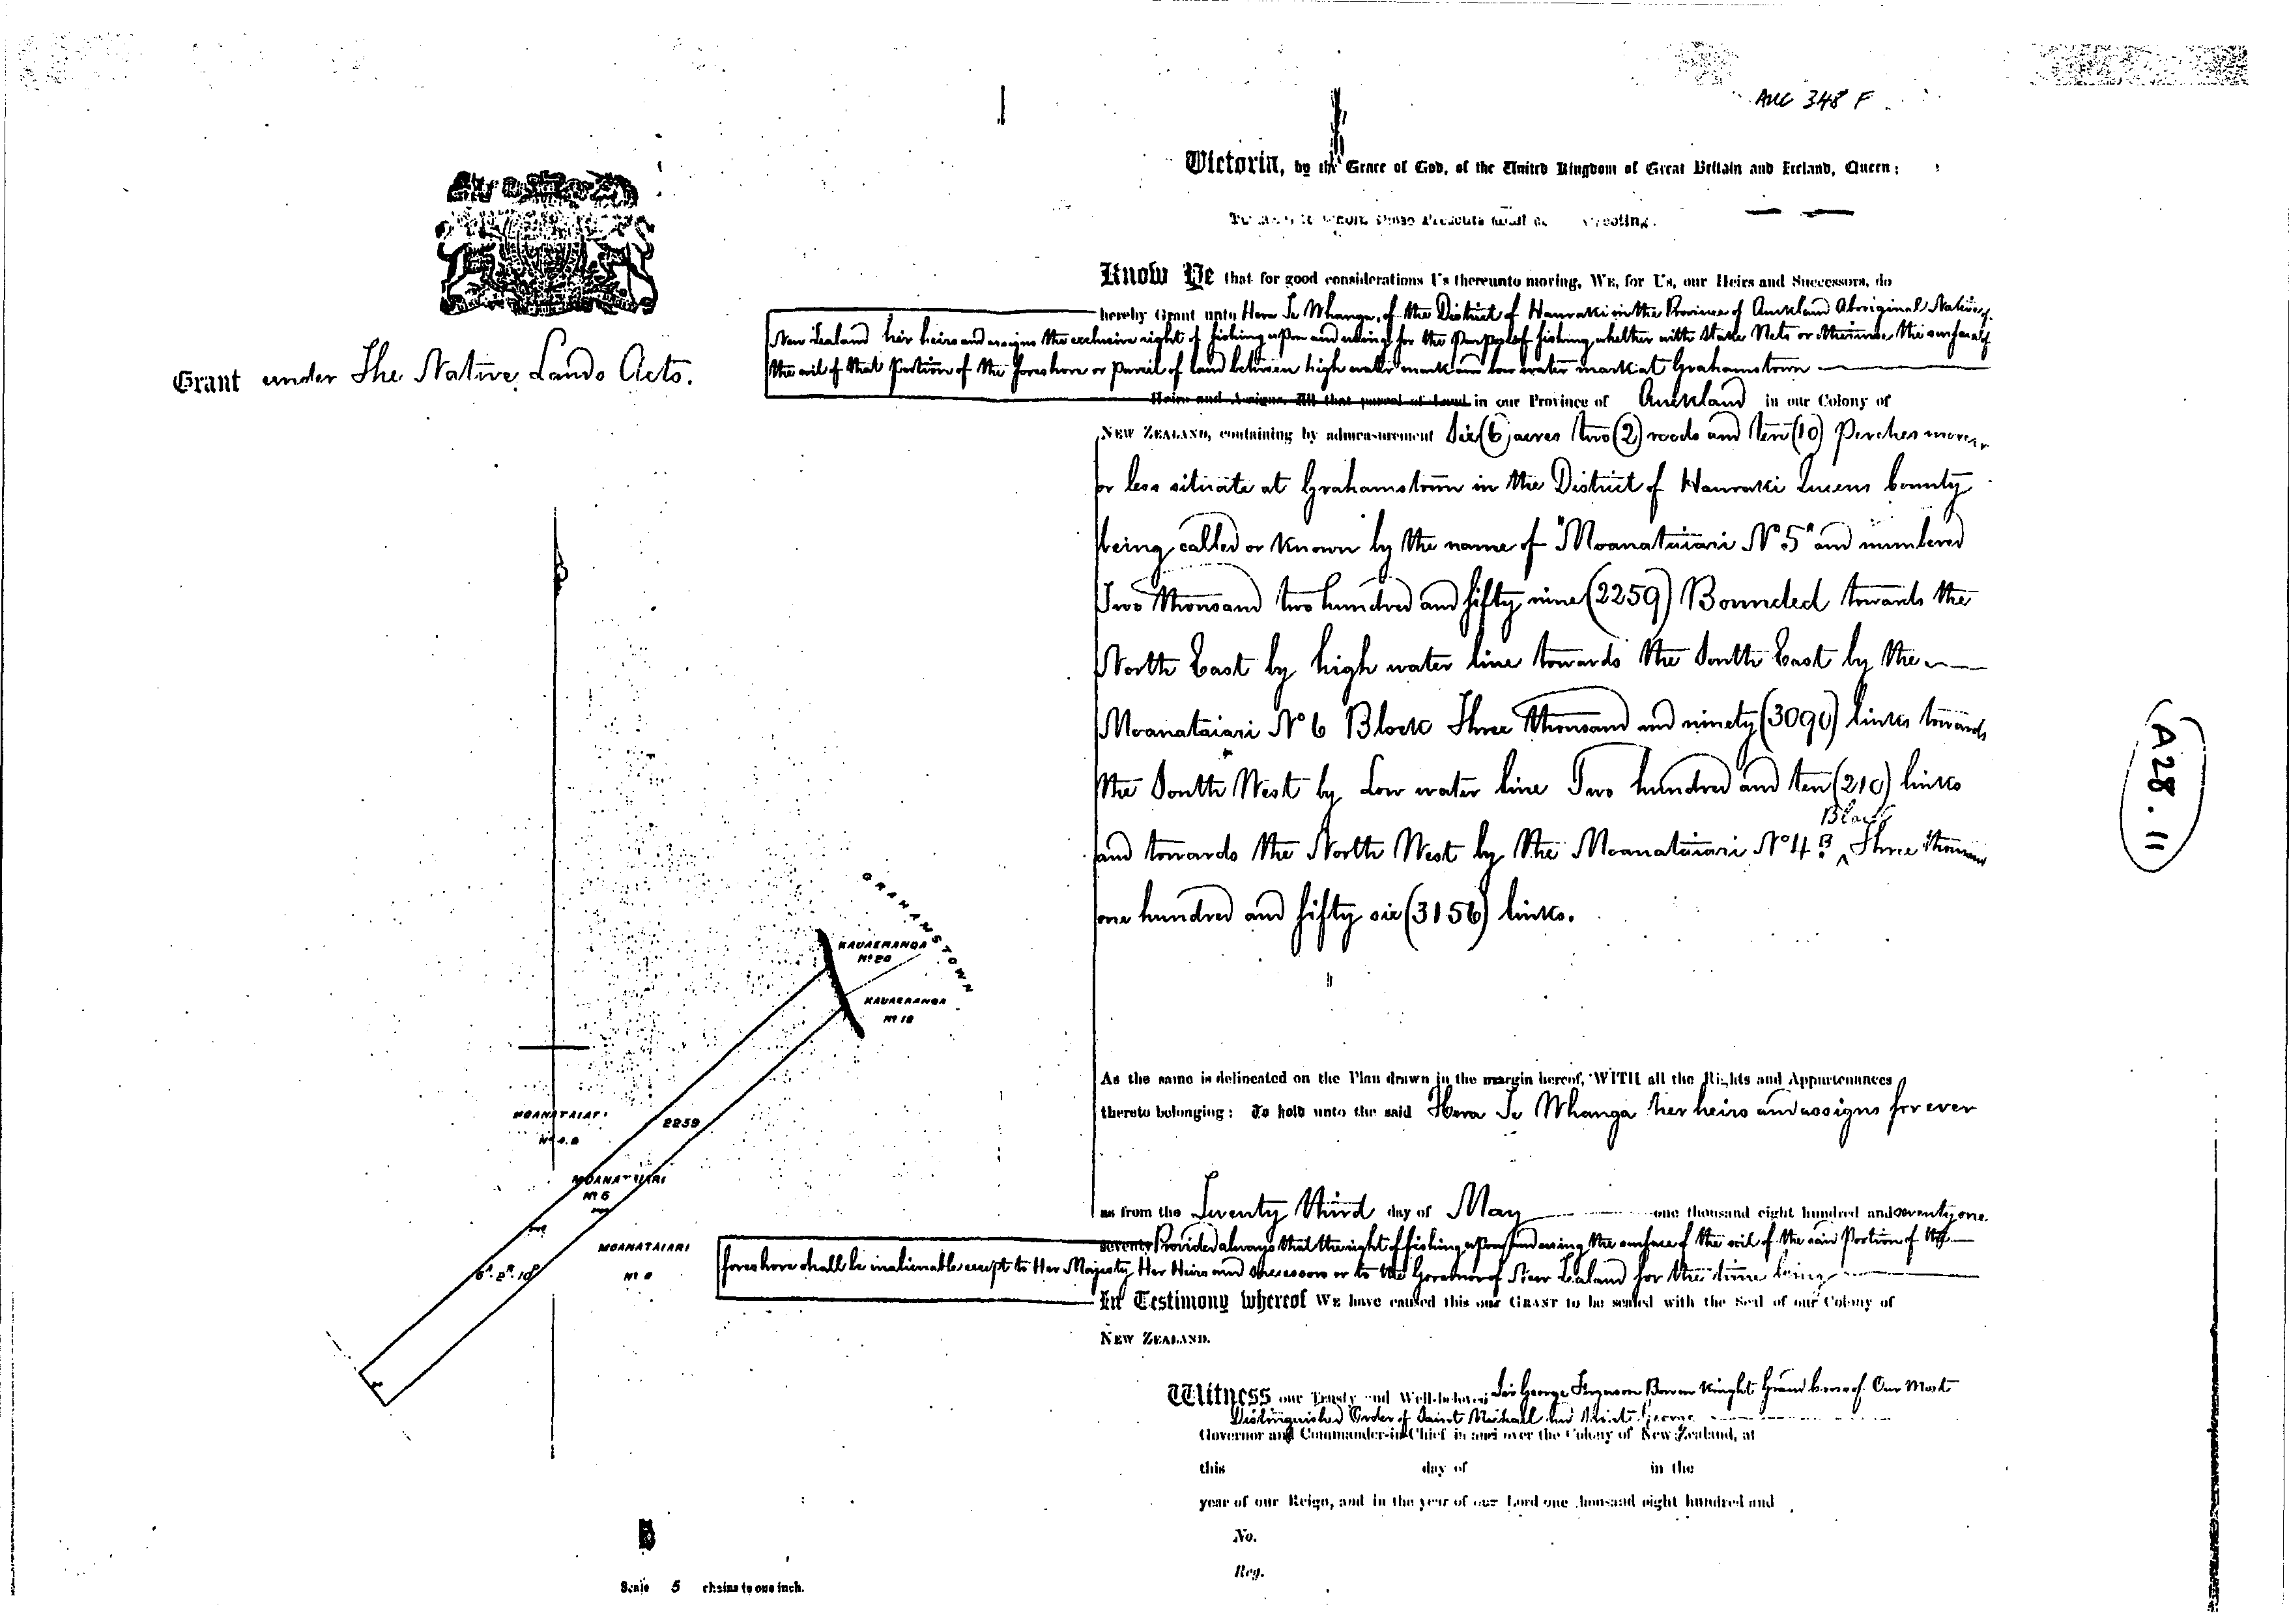 AUC 348 F
Victoria, by the Grace of God, of the United Kingdom of Great Britain and Ireland, Queen:
To all to whom these Presents shall Greeting.
Know Ye that for good considerations Us thereunto moving, WE, for Us, our Heirs and Successors, do
hereby Grant unto Hera Te Whanga, of the District of Hauraki in the Province of Auckland Aboriginal Native of
New Zealand her heirs and assigns the exclusive right of fishing upon and using for the Purpose of fishing whether with Stake Nets or otherwise the surface of
the soil of that portion of the foreshore or parcel of land between high water mark and low water mark at Grahamstown
Heirs and Assigns, All that parcel of Land in our Province of Auckland in our Colony of
NEW ZEALAND, containing by admeasurement Six (6) acres two (2) roods and ten (10) Perches more
or less situate at Grahamstown in the District of Hauraki Queens County
being called or known by the name of "Moanataiari No 5" and numbered
Two thousand two hundred and fifty nine (2259) Bounded towards the
North East by high water line towards the South East by the
Moanataiari No 6 Block Three thousand and ninety (3090) links towards
the South West by Low water line Two hundred and ten (210) links
and towards the North West by the Moanataiari No 4 B. Block Three thousand
one hundred and fifty six (3156) links.
As the same is delineated on the Plan drawn in the margin hereof, WITH all the Rights and Appurtenances
thereto belonging: To hold unto the said Hera Te Whanga her heirs and assigns for ever
as from the Twenty third day of May one thousand eight hundred and seventy one.
seventy Provided always that the right of fishing upon and using the surface of the soil of the said Portion of the
foreshore shall be inalienable except to Her Majesty Her Heirs and Successors or to the Governor of New Zealand for the time being
In Testimony whereof WE have caused this our GRANT to be sealed with the Seal of our Colony of
NEW ZEALAND.
Witness our Trusty and Well-beloved Sir George Ferguson Bowen Knight Grand Cross of Our Most
Distinguished Order of Saint Michall and Saint George
Governor and Commander-in-Chief in and over the Colony of New Zealand, at
this day of in the
year of our Reign, and in the year of our Lord one thousand eight hundred and
No.
Reg.
Grant under The Native Lands Acts.
GRAHAMSTOWN
KAUAERANGA
No 20
KAUAERANGA
No 18
MOANATAIARI
No 4.B
2259
MOANATAIARI
No 5
MOANATAIARI
No 6
6A. 2R. 10P
Scale 5 chains to one inch.
A28.11